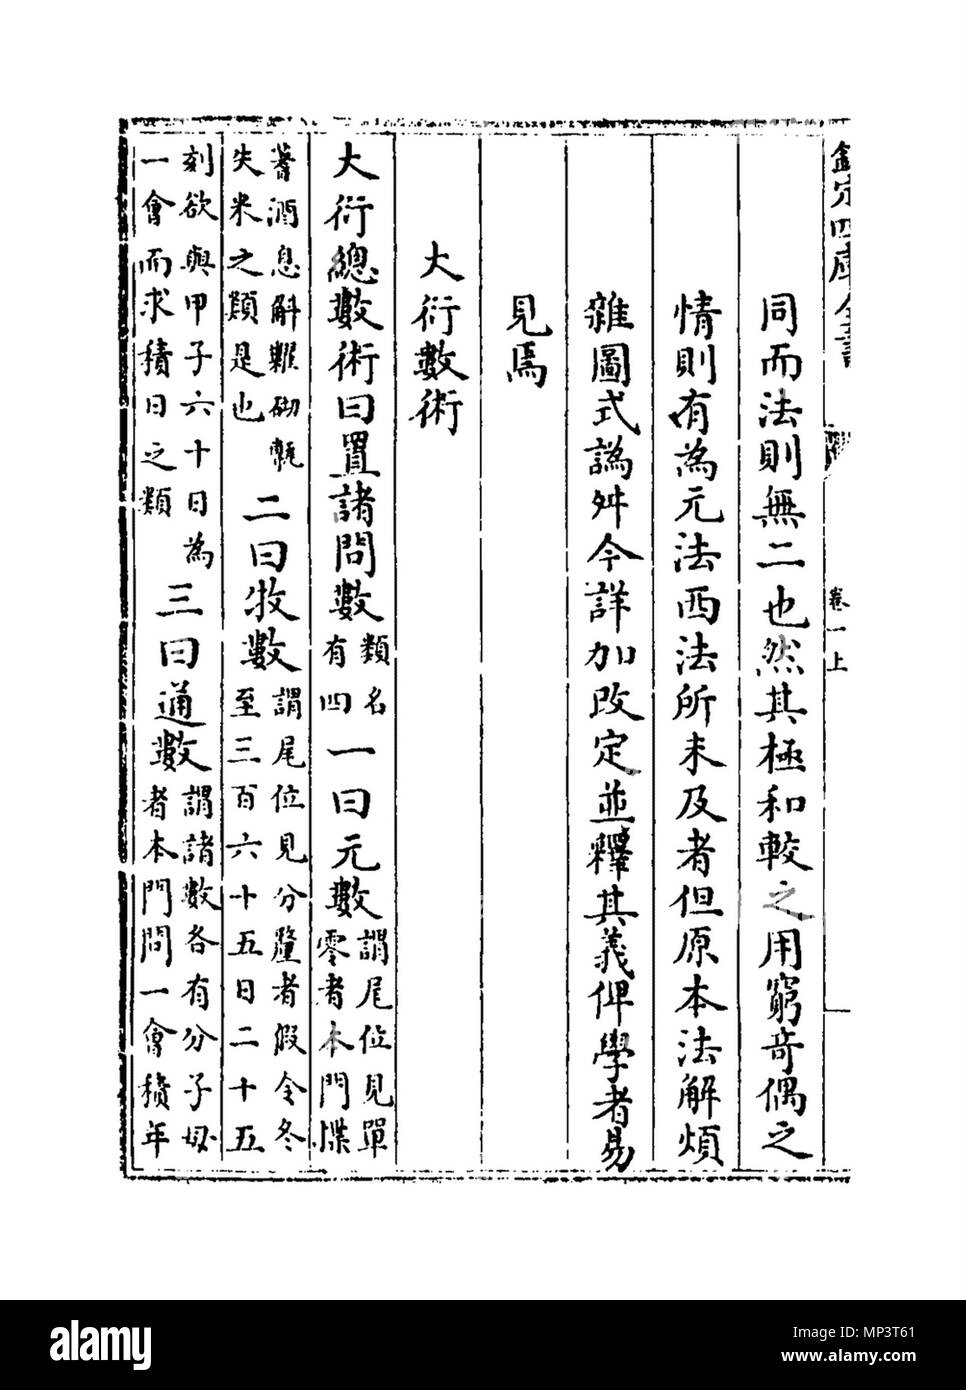 欽定四庫全書
卷一上
同而法則無二也然其極和較之用窮竒偶之
情則有為元法西法所未及者但原本法解煩
雜圖式譌舛今詳加改定並釋其義俾學者易
見焉
大衍數術
大衍總數術曰置諸問數類名有四一曰元數謂尾位見單零者本門揲
蓍酒息斛糶砌甎失米之類是也二曰收數謂尾位見分釐者假令冬至三百六十五日二十五
刻欲與甲子六十日為一會而求積日之類三曰通數謂諸數各有分子母者本門問一會積年
alamy
Image ID: MP3T61
www.alamy.com